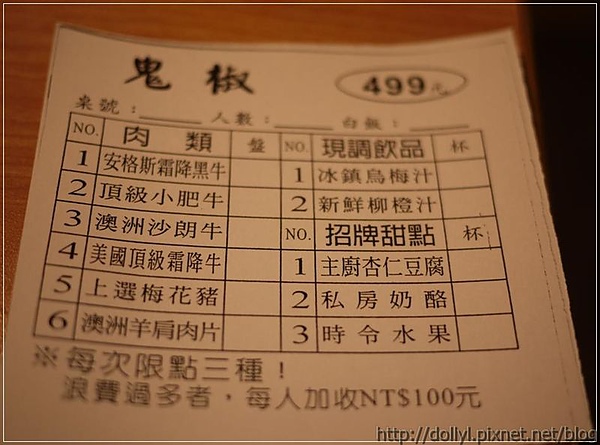 鬼椒 499元
桌號：_____ 人數：_____ 白飯：_____
NO. 肉類 盤 NO. 現調飲品 杯
1 安格斯霜降黑牛 1 冰鎮烏梅汁
2 頂級小肥牛 2 新鮮柳橙汁
3 澳洲沙朗牛 NO. 招牌甜點 杯
4 美國頂級霜降牛 1 主廚杏仁豆腐
5 上選梅花豬 2 私房奶酪
6 澳洲羊肩肉片 3 時令水果
※每次限點三種！
浪費過多者，每人加收NT$100元
http://dollyl.pixnet.net/blog